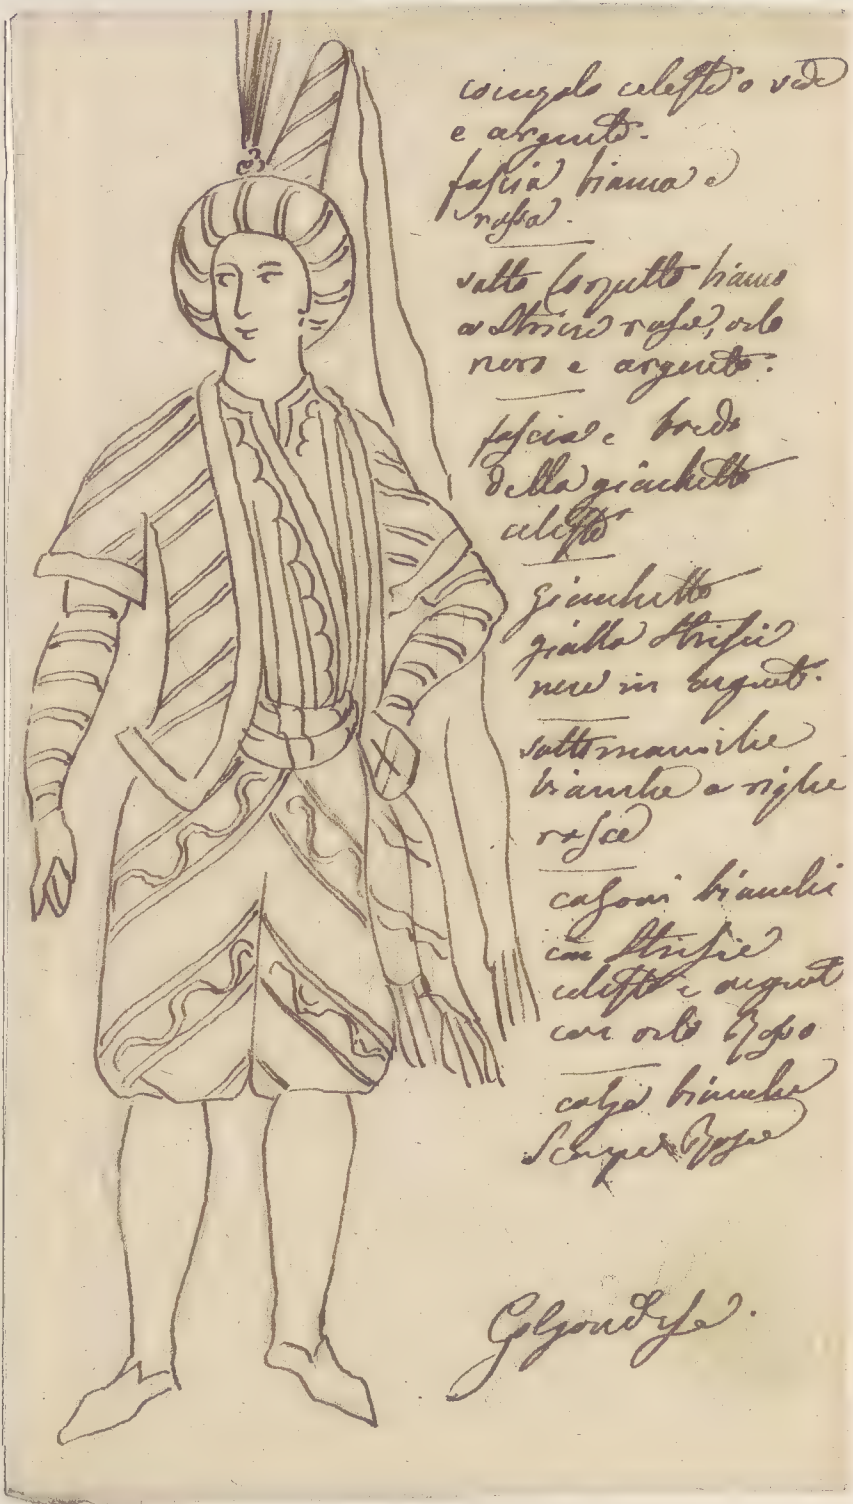 celeste o
e argento.
fascia bianca e
rossa.
sotto Corpetto bianco
a Strisce rosse, orlo
nero e argento.
fascia e
della giacchetta
celeste
Giacchetta
gialla Strisie
nere in argent.
sottomaniche
bianche a righe
rosse
calsoni bianchi
con Strisie
celeste e argent
con orlo Rosso
calze bianche
Scarpe Rosse
Golgondese.